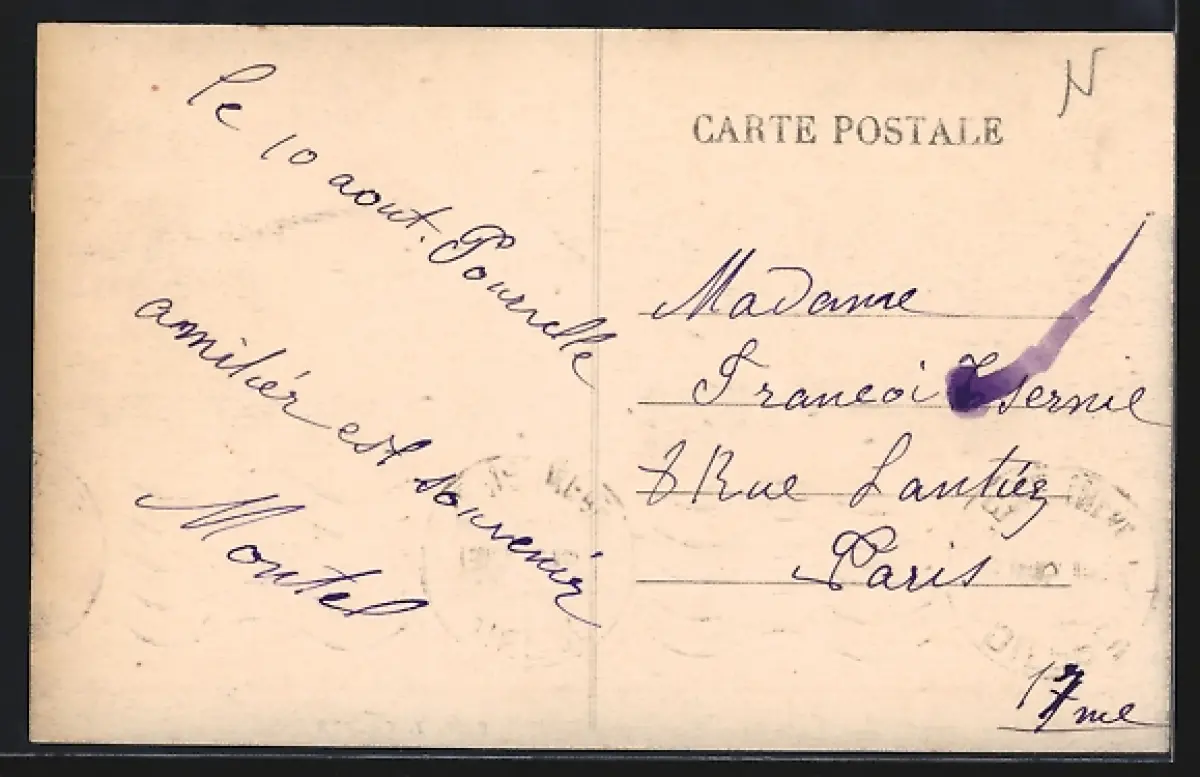 le 10 aout. Pournelle
amitiér est souvenir
Montel
N
CARTE POSTALE
Madame
Francoi
8 Rue Lantiéz
Paris
17me